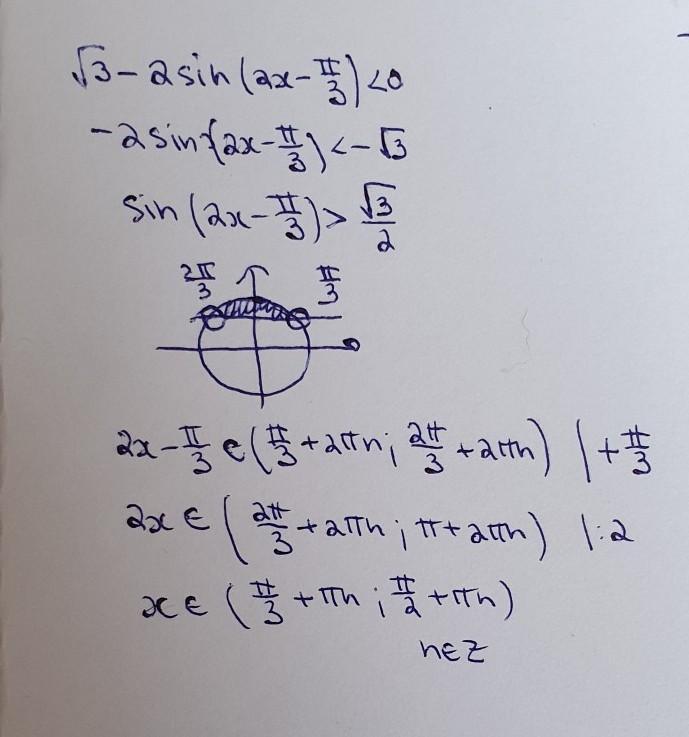 √3 - 2sin(2x - π/3) < 0
-2sin(2x - π/3) < -√3
sin(2x - π/3) > √3/2
2π/3 π/3
2x - π/3 ∈ (π/3 + 2πn; 2π/3 + 2πn) | + π/3
2x ∈ (2π/3 + 2πn; π + 2πn) | : 2
x ∈ (π/3 + πn; π/2 + πn)
n∈Z